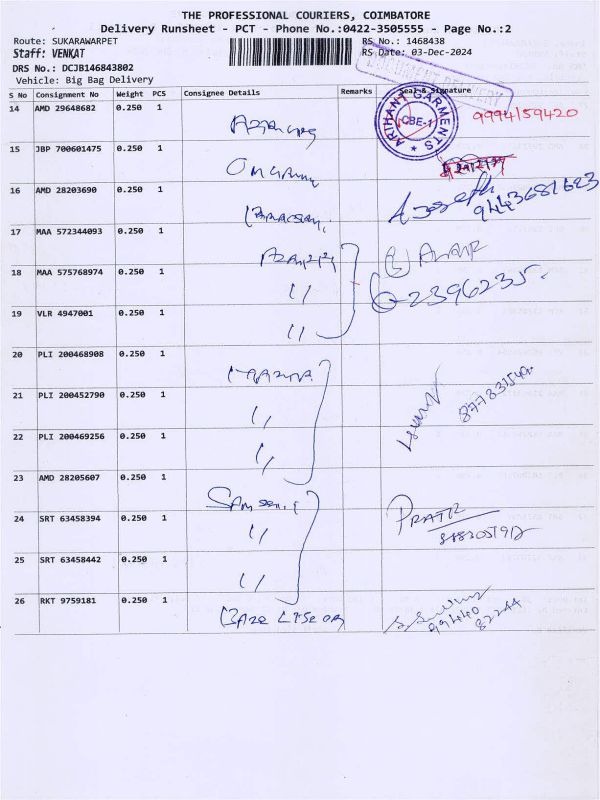 THE PROFESSIONAL COURIERS, COIMBATORE
Delivery Runsheet - PCT - Phone No.:0422-3505555 - Page No.:2
Route: SUKARAWARPET
RS No.: 1468438
Staff: VENKAT
RS Date: 03-Dec-2024
DRS No.: DCJB146843802
Vehicle: Big Bag Delivery
S No Consignment No Weight PCS Consignee Details Remarks Seal & Signature
14 AMD 29648682 0.250 1
ARIHANT GARMENTS
CBE-1
9994159420
15 JBP 700601475 0.250 1
16 AMD 28203690 0.250 1
9443681623
17 MAA 572344093 0.250 1
18 MAA 575768974 0.250 1 "
2396235
19 VLR 4947001 0.250 1 "
20 PLI 200468908 0.250 1
21 PLI 200452790 0.250 1 "
22 PLI 200469256 0.250 1 "
23 AMD 28205607 0.250 1
24 SRT 63458394 0.250 1 "
25 SRT 63458442 0.250 1 "
26 RKT 9759181 0.250 1
99440
82244